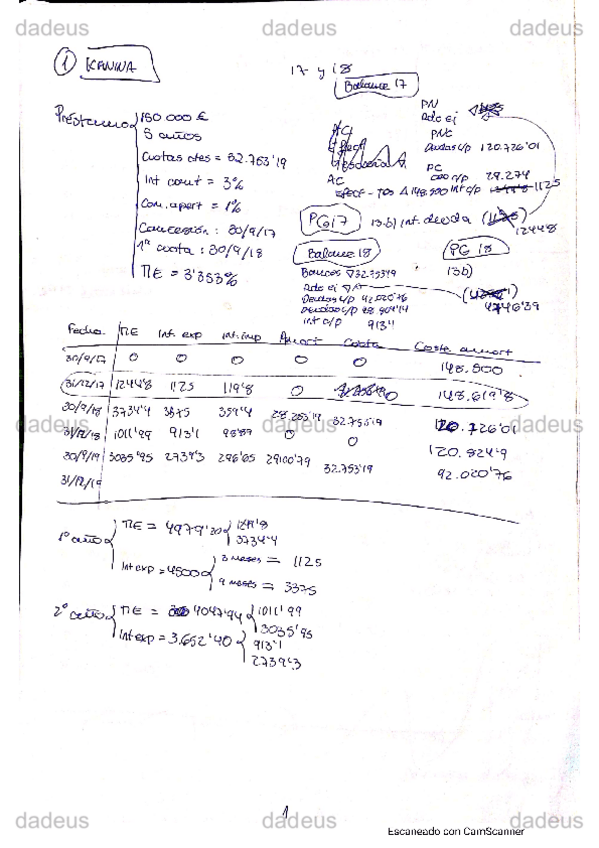 dadeus dadeus dadeus
① KANINA
17 y 18
Balance 17
Préstamo
150.000 €
5 años
Cuotas ctes = 32.753'19
Int cont = 3%
Com. apert = 1%
Concesión: 30/9/17
1ª cuota: 30/9/18
TIE = 3'353%
AC
Efect - tes Δ 148.500
PN
Rdo ej
PNC
Deudas l/p 120.726'01
PC
c/p 29.274
Int c/p 1125
PG 17
13.b) Int. deuda
1244'8
Balance 18
Bancos ∇ 32.753'19
Rdo ej ∇
Deudas l/p 92.020'76
Deudas c/p
Int c/p 913'1
PG 18
13b)
4746'39
Fecha. TIE Int. exp Int. imp Amort Cuota Coste amort
30/9/17 0 0 0 0 0 148.500
31/12/17 1244'8 1125 119'8 0 0 148.619'8
30/9/18 3734'4 3375 359'4 28.253'19 32.753'19 120.726'01
31/12/18 1011'99 913'1 98'89 0 0 120.824'9
30/9/19 3035'95 2739'3 296'65 29100'79 32.753'19 92.020'76
31/12/19
dadeus dadeus dadeus
1º año
TIE = 4979'20
1244'8
3734'4
Int exp = 4500
3 meses = 1125
9 meses = 3375
2º año
TIE = 4047'94
1011'99
3035'95
Int exp = 3.652'40
913'1
2739'3
1
dadeus dadeus dadeus
Escaneado con CamScanner